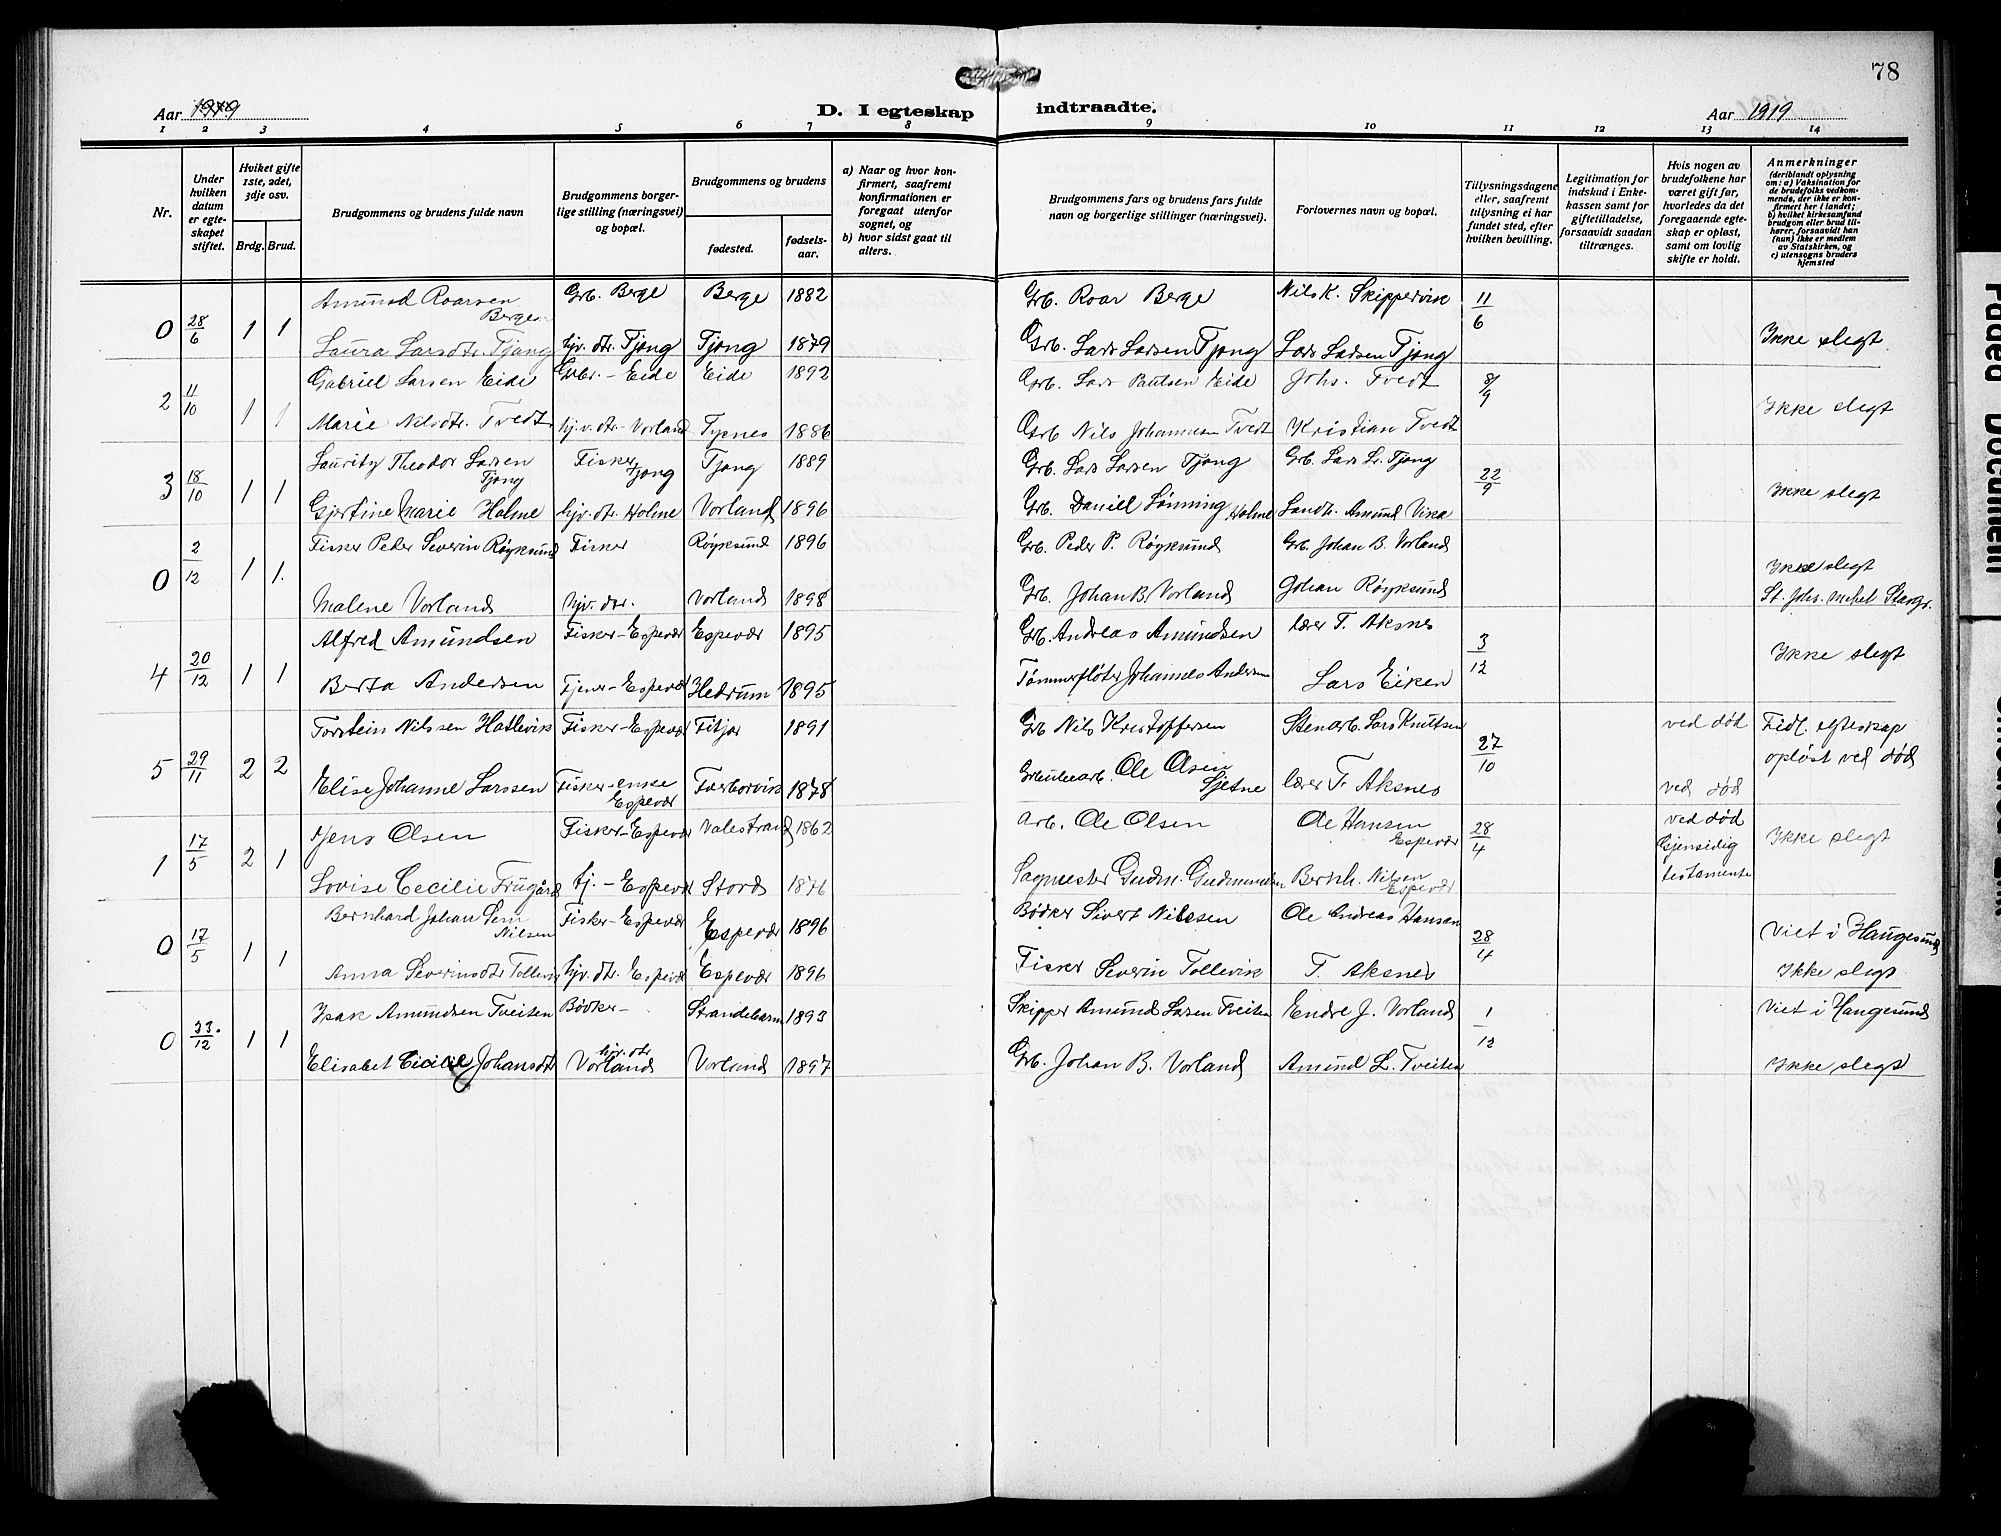 78
Aar 1919
D. I egteskap indtraadte.
Aar 1919
1 2 3 4 5 6 7 8 9 10 11 12 13 14
Nr.
Under hvilken datum er egteskapet stiftet.
Hviket gifte 1ste, 2det, 3dje osv.
Brdg. Brud.
Brudgommens og brudens fulde navn
Brudgommens borgerlige stilling (næringsvei) og bopæl.
Brudgommens og brudens
fødested.
fødselsaar.
a) Naar og hvor konfirmert, saafremt konfirmationen er foregaat utenfor sognet, og
b) hvor sidst gaat til alters.
Brudgommens fars og brudens fars fulde navn og borgerlige stillinger (næringsvei).
Forlovernes navn og bopæl.
Tillysningsdagene eller, saafremt tillysning ei har fundet sted, efter hvilken bevilling.
Legitimation for indskud i Enkekassen samt for giftetilladelse, forsaavidt saadan tiltrænges.
Hvis nogen av brudefolkene har været gift før, hvorledes da det foregaaende egteskap er opløst, samt om lovlig skifte er holdt.
Anmerkninger (deriblandt oplysning om: a) Vaksination for de brudefolks vedkommende, der ikke er konfirmert her i landet; b) hvilket kirkesamfund brudgom eller brud tilhører, forsaavidt han (hun) ikke er medlem av Statskirken, og c) utensogns bruders hjemsted
Amund Roarsen Berge Grb. Berge Berge 1882 Grb. Roar Berge Nils K. Skippervik 11/6
0 28/6 1 1 Ikke slegt
Laura Larsdtr. Tjong hjv. dtr. Tjong Tjong 1879 Grb. Lars Larsen Tjong Lars Larsen Tjong
Gabriel Larsen Eide Grbr. - Eide Eide 1892 Grb. Lars Paulsen Eide Johs. Tvedt 8/9
2 11/10 1 1 Ikke slegt
Marie Nilsdtr. Tvedt hjv. dtr. - Vorland Tysnes 1886 Grb Nils Johannesen Tvedt Kristian Tvedt
Lauritz Theodor Larsen Tjong Fisker Tjong Tjong 1889 Grb. Lars Larsen Tjong Grb. Lars Lr. Tjong
3 18/10 1 1 22/9 Ikke slegt
Gjertine Marie Holme hjv. dtr. Holme Vorland 1896 Grb. Daniel Lønning Holme Landh. Amund Vika
Fisker Peder Severin Røyksund Fisker Røyksund 1896 Grb. Peder P. Røyksund Grb. Johan B. Vorland
0 2/12 1 1. Ikke slegt
Malene Vorland hjv. dtr. Vorland 1898 Grb. Johan B. Vorland Johan Røyksund St. Johs.
Alfred Amundsen Fisker - Espevær Espevær 1895 Grb. Andreas Amundsen lærer T. Aksnes
4 20/12 1 1 3/12 Ikke slegt
Berta Andersen Tjener - Espevær Hedrum 1895 Tømmerfløter Johannes Andersen Lars Eiken
Torstein Nilssen Hatlevik Fisker - Espevær Fitjar 1891 Grb Nils Kristoffersen Stenarb. Lars Knutsen ved død Tidl. egteskap
5 29/11 2 2 27/10 opløst ved død
Elise Johanne Larssen Fisker-enke Espevær Færborvik 1878 Ole Olsen Sjetne lærer T. Aksnes ved død
Jens Olsen Fisker - Espevær Valestrand 1862 Arb. Ole Olsen Ole Hansen Espevær ved død
1 17/5 2 1 28/4 Gjensidig Ikke slegt
Lovise Cecilie Frugård tj. - Espevær Stord 1876 Sagmester Gudm. Gudmundsen Bernh. Nilsen Espevær testamente
Bernhard Johan Sem Nilsen Fisker - Espevær Espevær 1896 Bødker Sivert Nilssen Ole Andreas Hansen
0 17/5 1 1 28/4 Viet i Haugesund
Anna Severinsdtr Tollevik hjv. dtr. Espevær Espevær 1896 Fisker Severin Tollevik T. Aksnes Ikke slegt
Isak Amundsen Tveiten Bødker - Strandebarm 1893 Skipper Amund Larsen Tveiten Endre J. Vorland 1/12 Viet i Haugesund
0 23./12 1 1
Elisabet Cicilie Johansdtr hjv. dtr. Vorland Vorland 1897 Grb. Johan B. Vorland Amund L. Tveiten Ikke slegt
Faded Document